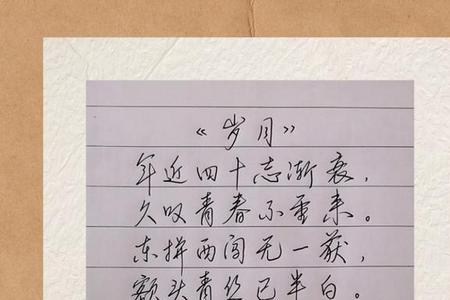 《岁月》
年近四十志渐衰，
久叹青春不重来。
东拼西闯无一获，
额头青丝已半白。